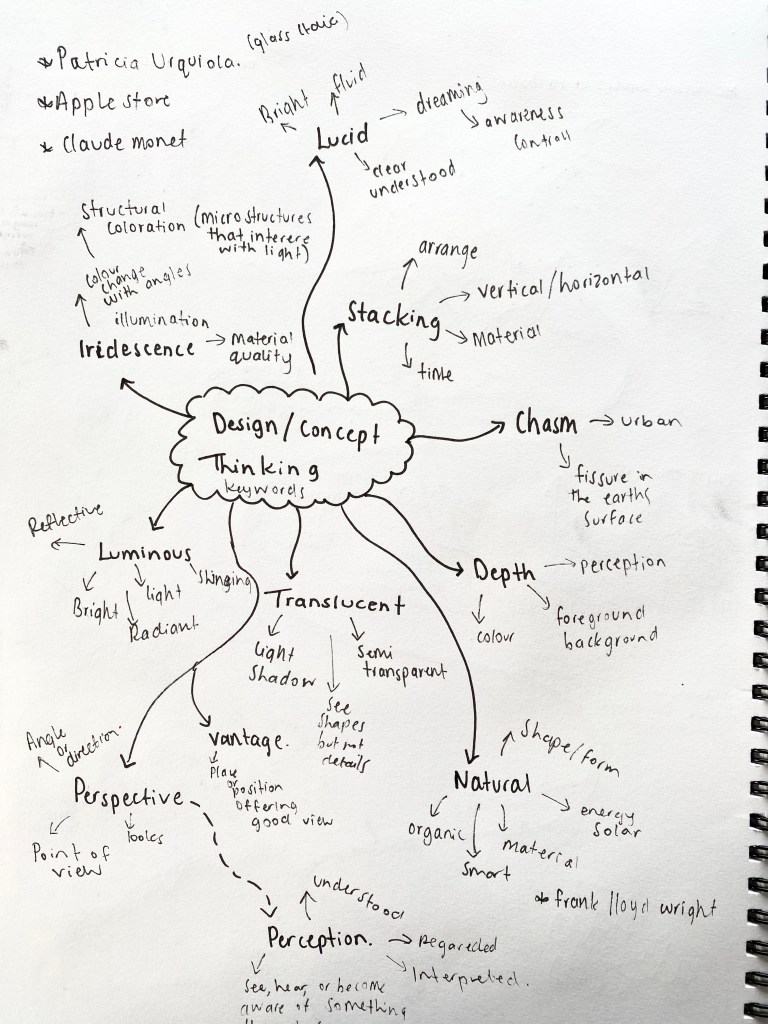 * Patricia Urquiola. (glass Italia)
* Apple store
* Claude monet
Bright
fluid
Lucid
dreaming
awareness
controll
clear
understood
Structural
coloration
(micro structures
that interere
with light)
colour
change
with angles
illumination
Iridescence
Material
quality
arrange
Stacking
vertical/horizontal
Material
time
Design/Concept
Thinking
keywords
Chasm
urban
fissure in
the earths
surface
Reflective
Luminous
Bright
light
Radiant
Translucent
Light
Shadow
See
Shapes
but not
details
Semi
transparent
Depth
perception
colour
foreground
background
Angle
or
direction.
Perspective
Point of
view
looks
Vantage.
Place
or
position
offering
good view
Natural
Shape/form
energy
solar
organic
Smart
Material
* frank lloyd wright
understood
Perception.
Regareded
Interpreted.
See, hear, or become
aware of something